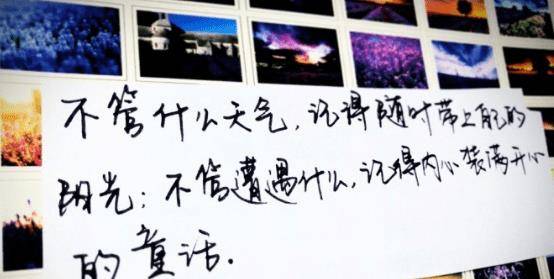 不管什么天气，记得随时带上自己的
阳光；不管遭遇什么，记得内心装满开心
的童话．